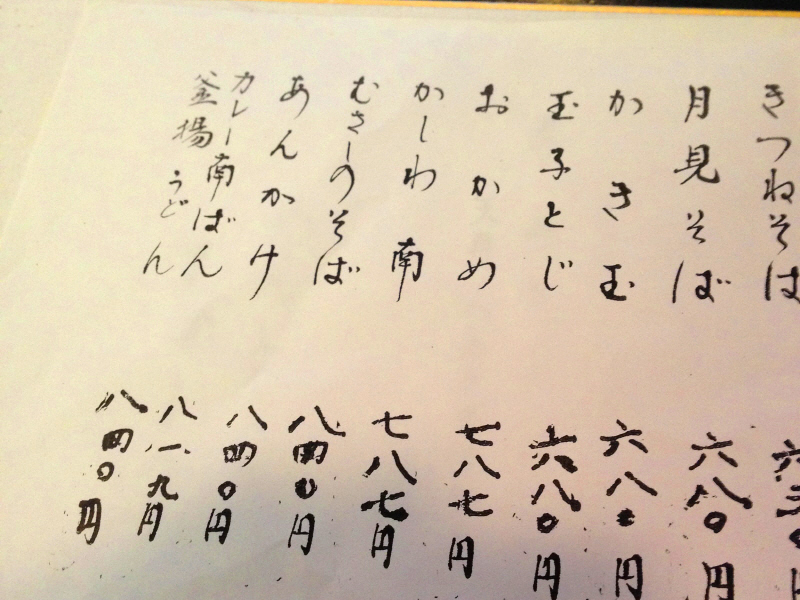 きつねそば
月見そば
かき玉
玉子とじ
おかめ
かしわ南
むさしのそば
あんかけ
カレー南ばん
釜揚うどん
六八〇円
六八〇円
六八〇円
七八七円
七八七円
八四〇円
八四〇円
八一九円
八四〇円